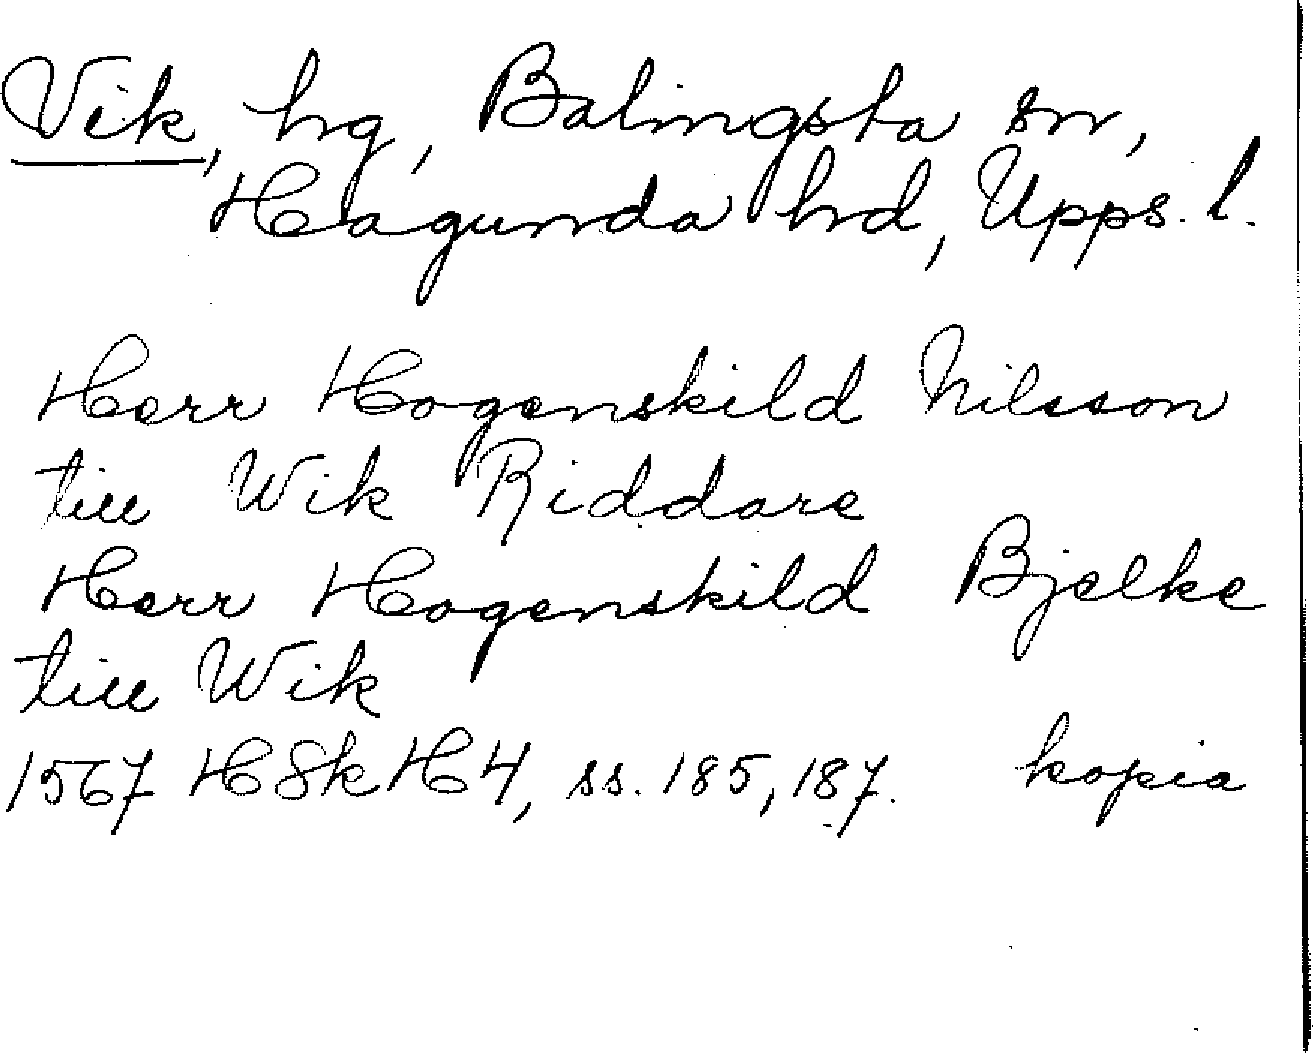 Vik, hg, Balingsta sn,
Hagunda hd, Upps. l.
Herr Hogenskild Nilsson
till Wik Riddare
Herr Hogenskild Bjelke
till Wik
1567 HSkH4, ss. 185, 187. kopia